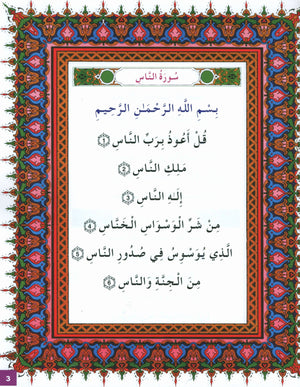 سُورَةُ النَّاسِ
بِسْمِ اللَّهِ الرَّحْمَـٰنِ الرَّحِيمِ
قُلْ أَعُوذُ بِرَبِّ النَّاسِ ﴿١﴾
مَلِكِ النَّاسِ ﴿٢﴾
إِلَـٰهِ النَّاسِ ﴿٣﴾
مِن شَرِّ الْوَسْوَاسِ الْخَنَّاسِ ﴿٤﴾
الَّذِي يُوَسْوِسُ فِي صُدُورِ النَّاسِ ﴿٥﴾
مِنَ الْجِنَّةِ وَالنَّاسِ ﴿٦﴾
3